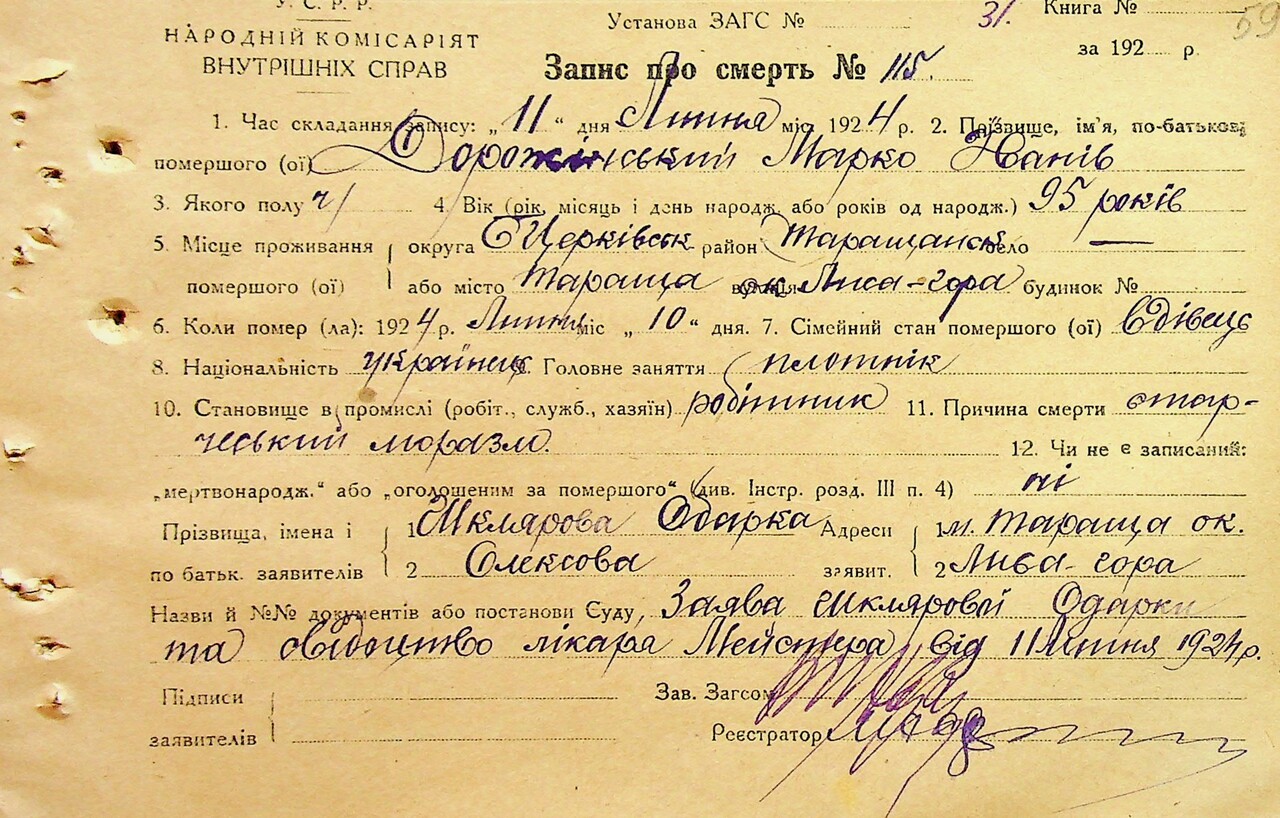 У. С. Р. Р.
НАРОДНІЙ КОМІСАРІЯТ
ВНУТРІШНІХ СПРАВ
Установа ЗАГС № 31. Книга № 59
за 192 р.
Запис про смерть № 115.
1. Час складання запису: „11“ дня Липня міс. 1924 р. 2. Прізвище, ім'я, по-батькові
помершого (ої) Дорожинський Марко Іванів
3. Якого полу ч/ 4. Вік (рік, місяць і день народж. або років од народж.) 95 років
5. Місце проживання округа БЦерківськ район Таращанськ село —
помершого (ої) або місто Тараща вулиця ок. Лиса-гора будинок №
6. Коли помер (ла): 1924 р. Липня міс „10“ дня. 7. Сімейний стан помершого (ої) вдівець
8. Національність українець 9. Головне заняття плотнік
10. Становище в промислі (робіт., служб., хазяїн) робітник 11. Причина смерти стар-
ческий моразм. 12. Чи не є записаний:
„мертвонародж.“ або „оголошеним за помершого“ (див. Інстр. розд. III п. 4) ні
Прізвища, імена і 1 Шклярова Одарка Адреси 1 м. Тараща ок.
по батьк. заявителів 2 Олексова заявит. 2 Лиса-гора
Назви й №№ документів або постанови Суду, Заява Шклярової Одарки
та свідоцтво лікара Мейстера від 11 Липня 1924 р.
Підписи Зав. Загсом
заявителів Реєстратор